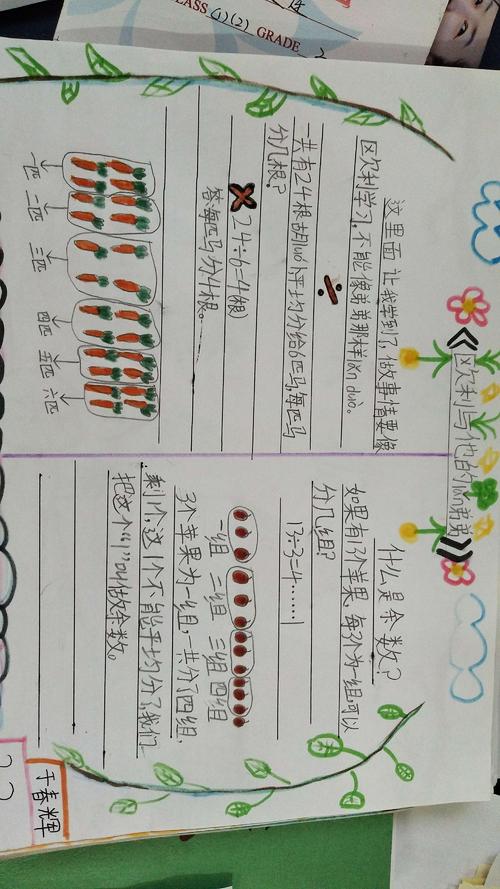 CLASS (1)(2) GRADE 2
《欧利与他的lǎn弟弟》
这里面让我学到了,做事情要像
欧利学习,不能像弟弟那样lǎn duò。
÷
一共有24根胡luó卜平均分给6匹马,每匹马
分几根?
×
24÷6=4(根)
答:每匹马分4根。
一匹 二匹 三匹 四匹 五匹 六匹
什么是余数?
如果有13个苹果,每3个为一组,可以
分几组?
13÷3=4……1
一组 二组 三组 四组
3个苹果为一组,一共分了四组,
剩1个,这1个不能平均分了,我们
把这个“1”叫做余数。
于春辉